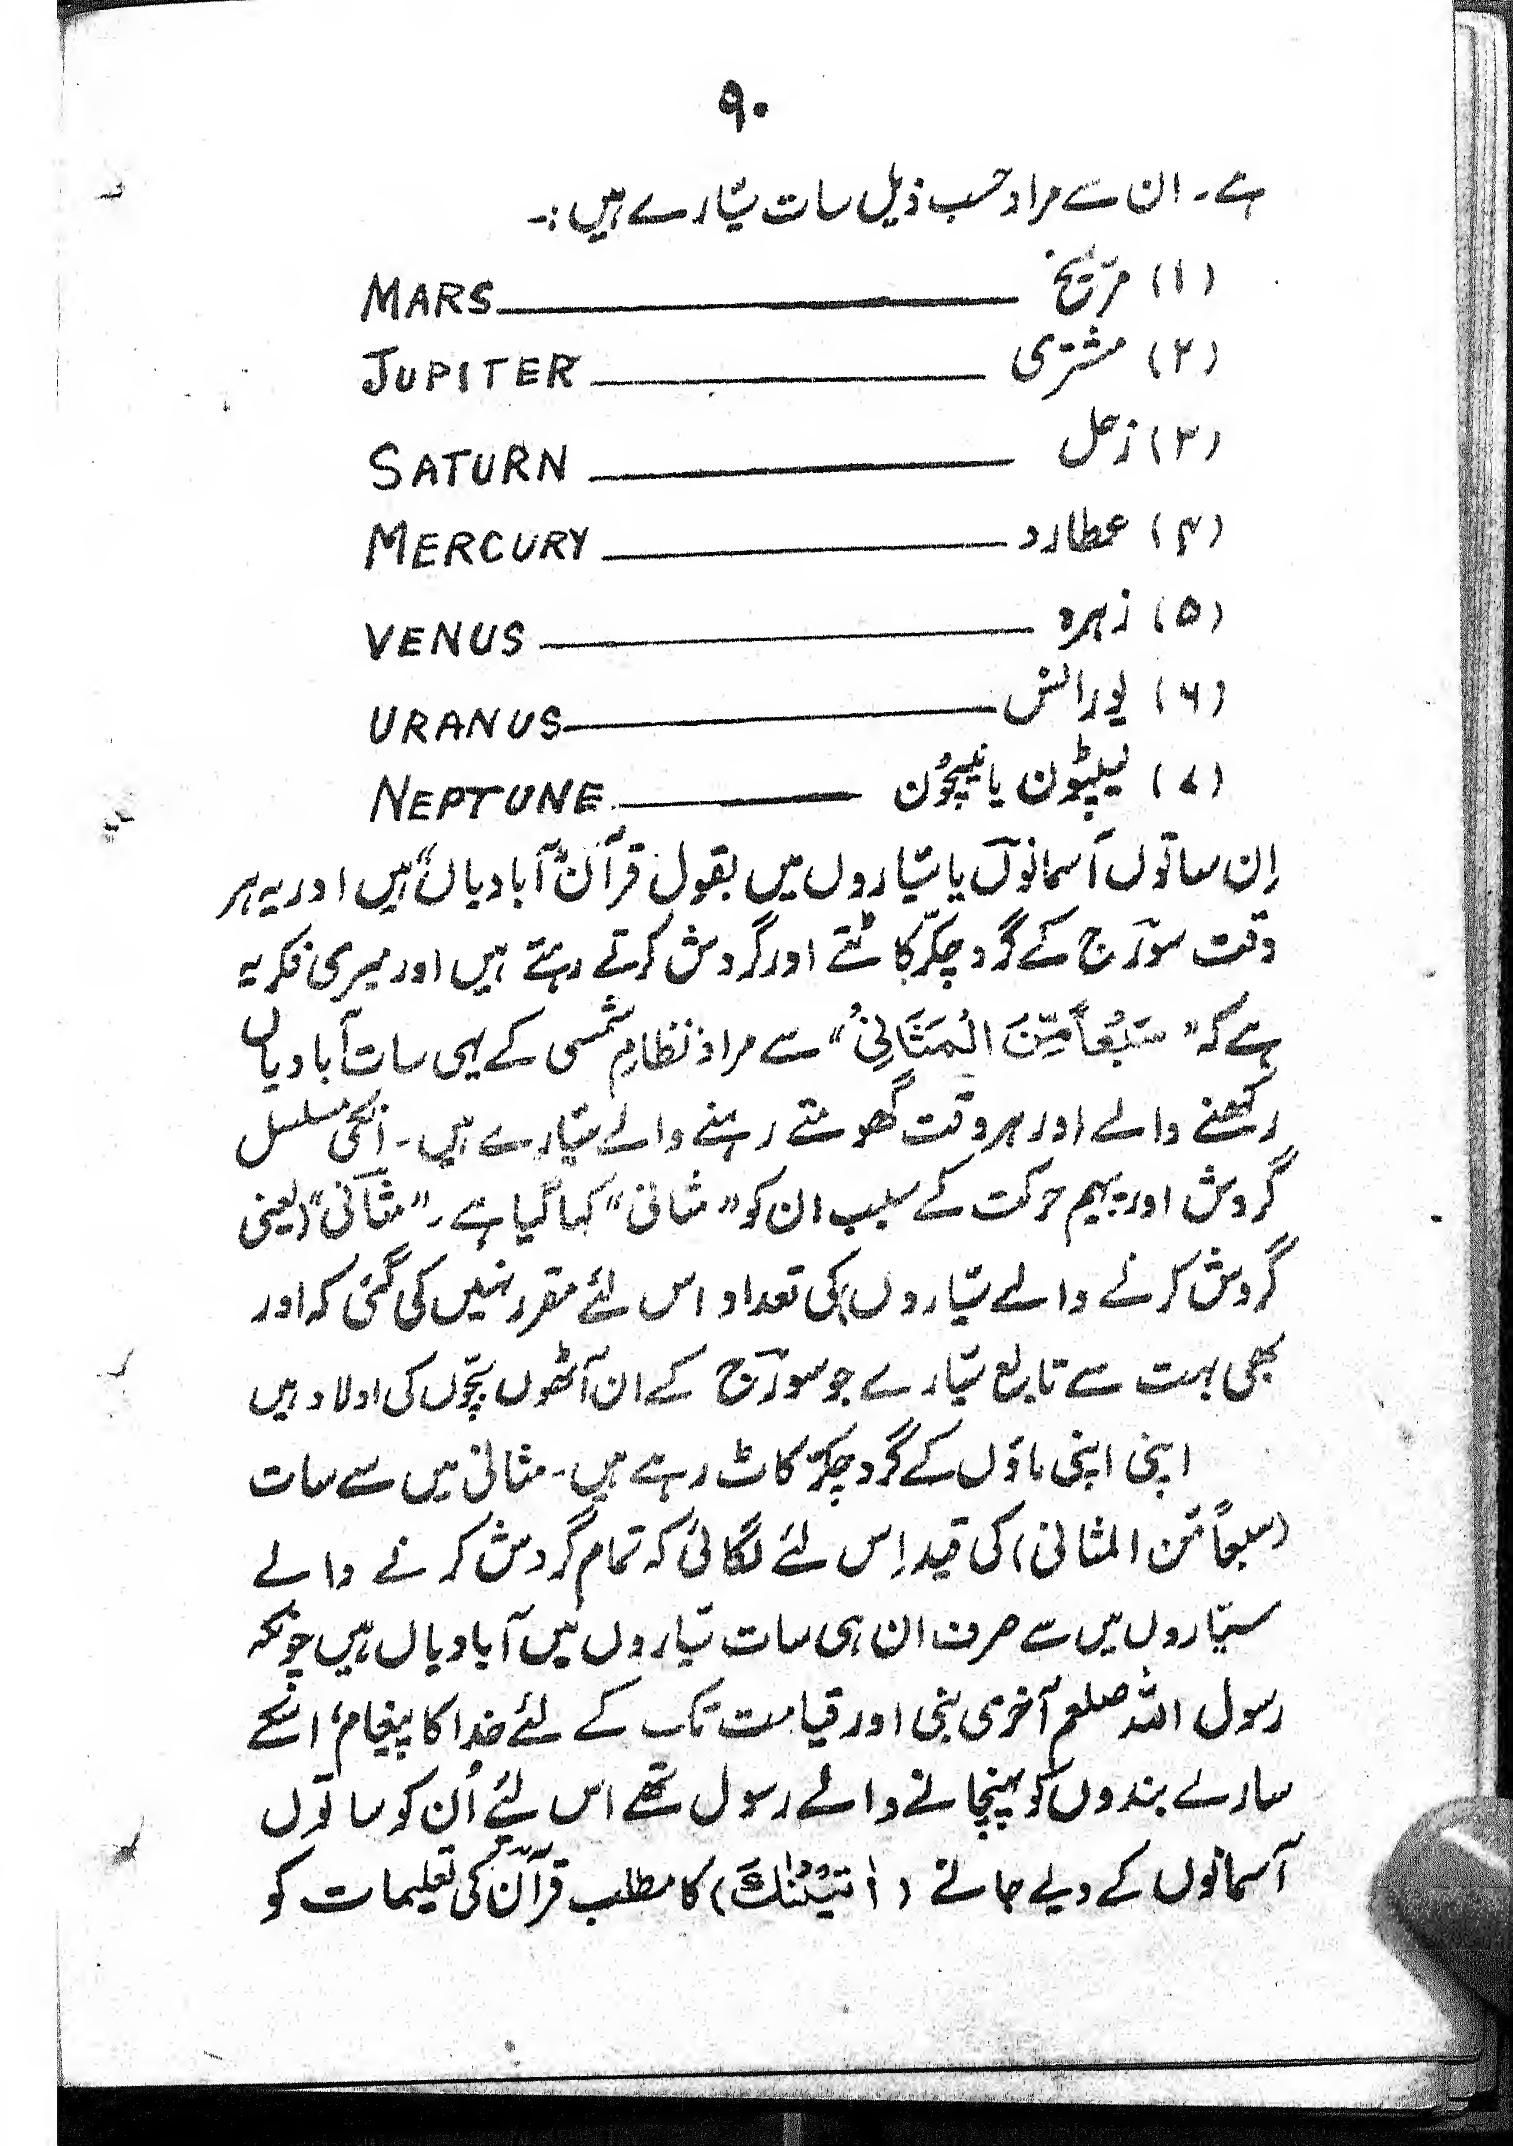 ۹۰
ہے۔ ان سے مراد حسب ذیل سات سیّارے ہیں :۔
(۱) مریّخ ـــــــــ MARS
(۲) مشتری ـــــــــ JUPITER
(۳) زحل ـــــــــ SATURN
(۴) عطارد ـــــــــ MERCURY
(۵) زہرہ ـــــــــ VENUS
(۶) یورانس ـــــــــ URANUS
(۷) نیپٹون یا نیپچُون ـــــــــ NEPTUNE
اِن ساتوں آسمانوں یا سیّاروں میں بقول قرآن "آبادیاں" ہیں اور یہ ہر
وقت سورج کے گرد چکّر کاٹتے اور گردش کرتے رہتے ہیں اور میری فکر یہ
ہے کہ "سَبْعاً مِّنَ الْمَثَانِیْ" سے مراد نظامِ شمسی کے یہی سات آبادیاں
رکھنے والے اور ہر وقت گھومتے رہنے والے سیّارے ہیں۔ انکی مسلسل
گردش اور پیہم حرکت کے سبب ان کو "مثانی" کہا گیا ہے۔ "مثانی" (یعنی
گردش کرنے والے سیّاروں) کی تعداد اس لئے مقرر نہیں کی گئی کہ اور
بھی بہت سے تابع سیّارے جو سورج کے ان آٹھوں بچّوں کی اولاد ہیں
اپنی اپنی ماؤں کے گرد چکّر کاٹ رہے ہیں۔ مثانی میں سے سات
(سبعاً مّن المثانی) کی قید اِس لئے لگائی کہ تمام گردش کرنے والے
سیّاروں میں سے صرف ان ہی سات سیّاروں میں آبادیاں ہیں چونکہ
رسول اللہ صلعم آخری نبی اور قیامت تک کے لئے خدا کا پیغام، اسکے
سارے بندوں کو پہنچانے والے رسول تھے اس لئے اُن کو ساتوں
آسمانوں کے دیے جانے (اٰتَیْنٰکَ) کا مطلب قرآن کی تعلیمات کو